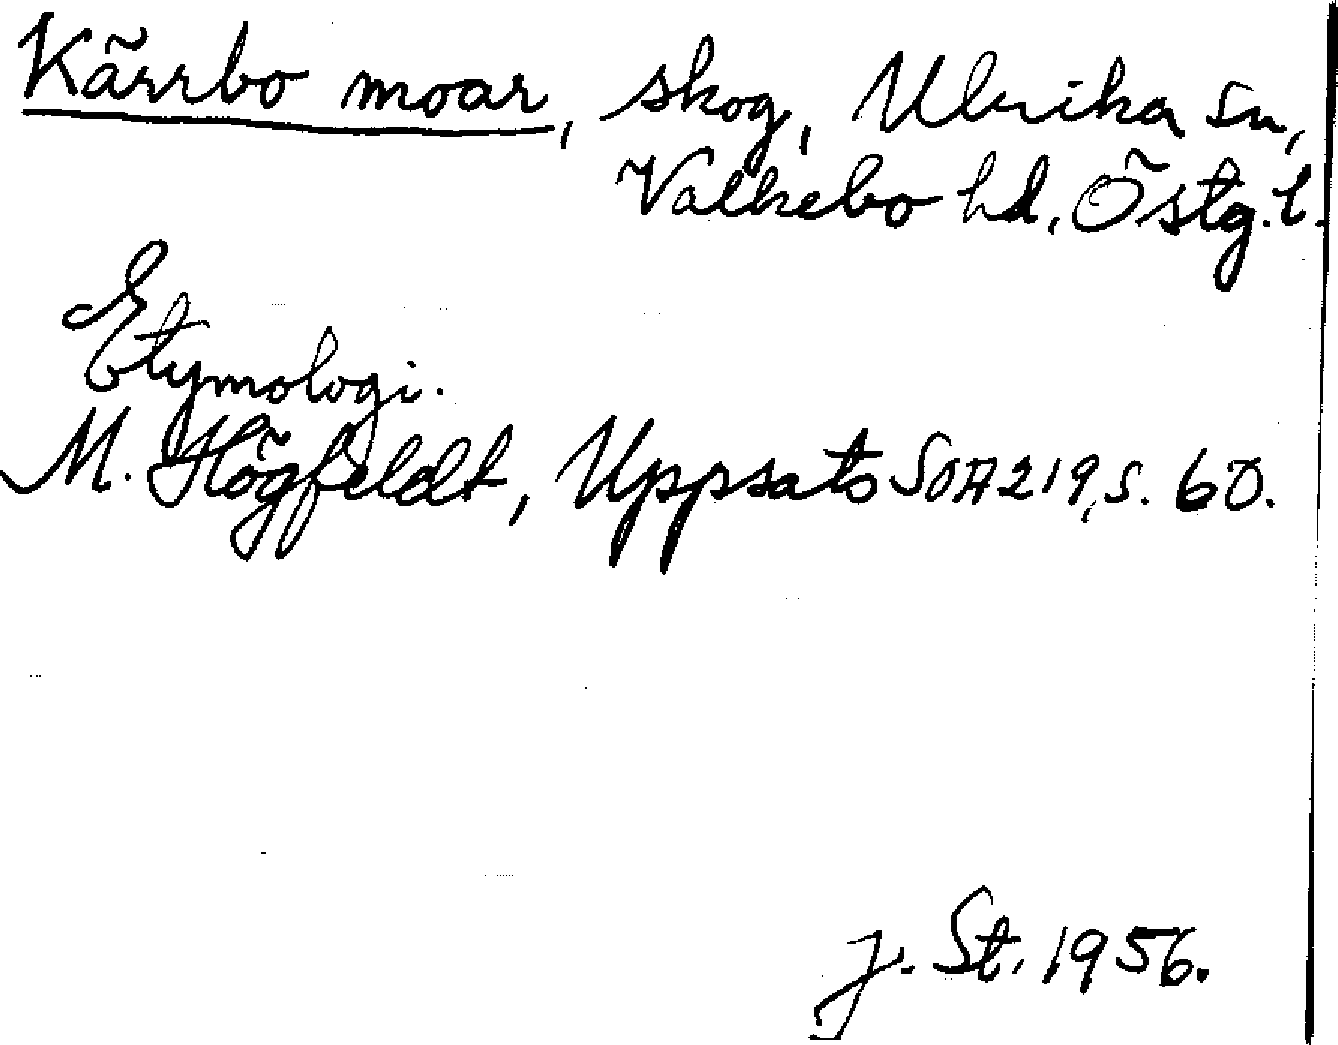 Kärrbo moar, skog, Ulrika sn,
Valkebo hd, Östg. l.
Etymologi.
M. Högfeldt, Uppsats SOA 219, s. 60.
J. St. 1956.